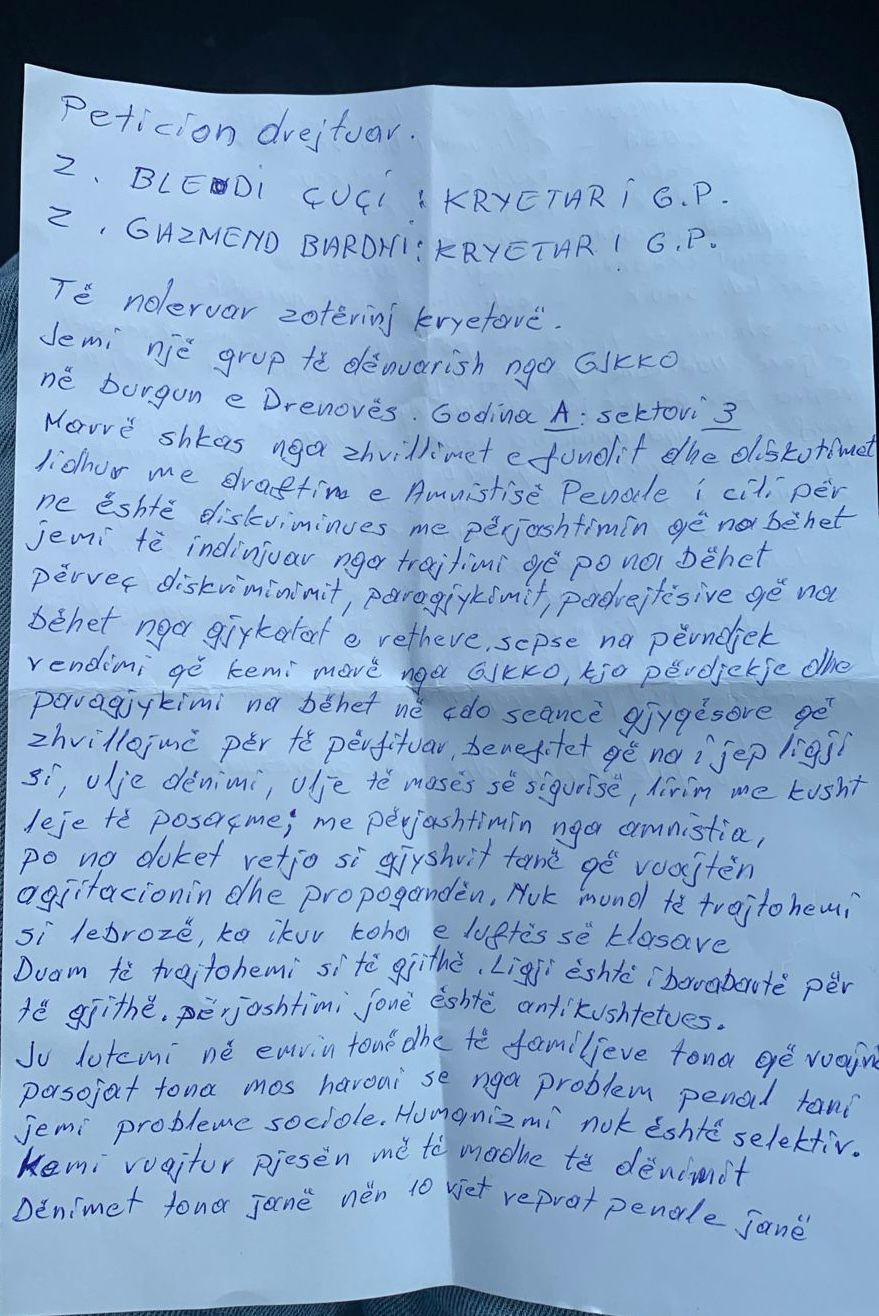 Peticion drejtuar.
Z. BLENDI ÇUÇI : KRYETAR I G.P.
Z. GAZMEND BARDHI: KRYETAR I G.P.
Të nderuar zotërinj kryetarë.
Jemi një grup të dënuarish nga GJKKO
në burgun e Drenovës. Godina A: sektori 3
Marrë shkas nga zhvillimet e fundit dhe diskutimet
lidhur me draftin e Amnistisë Penale i cili për
ne është diskriminues me përjashtimin që na bëhet
jemi të indinjuar nga trajtimi që po na bëhet
përveç diskriminimit, paragjykimit, padrejtësive që na
bëhet nga gjykatat e rretheve, sepse na përndjek
vendimi që kemi marë nga GJKKO, kjo përdjekje dhe
paragjykimi na bëhet në çdo seancë gjyqësore që
zhvillojmë për të përfituar, benefitet që na i jep ligji
si, ulje dënimi, ulje të masës së sigurisë, lirim me kusht
leje të posaçme; me përjashtimin nga amnistia,
po na duket vetja si gjyshrit tanë që vuajtën
agjitacionin dhe propogandën. Nuk mund të trajtohemi
si lebrozë, ka ikur koha e luftës së klasave
Duam të trajtohemi si të gjithë. Ligji është i barabartë për
të gjithë. përjashtimi jonë është antikushtetues.
Ju lutemi në emrin tonë dhe të familjeve tona që vuajnë
pasojat tona mos haroni se nga problem penal tani
jemi probleme sociale. Humanizmi nuk është selektiv.
Kemi vuajtur pjesën më të madhe të dënimit
Dënimet tona janë nën 10 vjet veprat penale janë